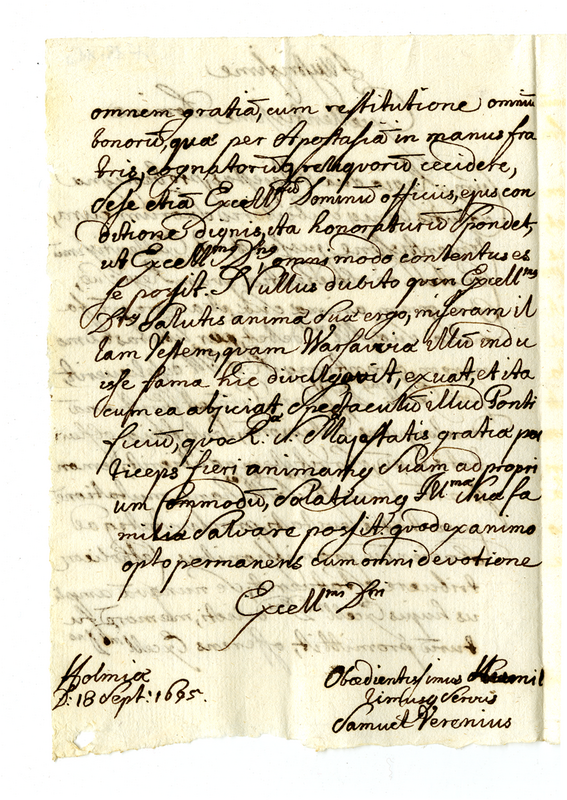 omnem gratiã, cum restitutione omniũ
bonorũ, quæ per Apostasiã in manus fra
tris, cognatorũq reliquorũ cecidere,
sese etiã Excell Dominũ officiis, ejus con
ditione dignis, ita honoraturũ spondet,
ut Excellmg Dng omnimodo contentus es
se possit. Nullus dubito quin Excellmg
Dtg salutis animæ suæ ergo, miseram il
lam Vestem, quam Warsaviæ illũ indu
isse fama hic divulgavit, exuat, et ita
cum ea abjiciat, spectaculũ illud Ponti
ficiũ, quo R. S. Majestatis gratiæ par
ticeps fieri animamq suam ad propri
um Commodũ, solatiumq Illmæ suæ fa
miliæ salvare possit: quod ex animo
opto permanens cum omni devotione
Excellmi Dni
Holmiæ
D: 18 Sept: 1695.
Obœdientissimus Humil
limusq Servus
Samuel Verenius